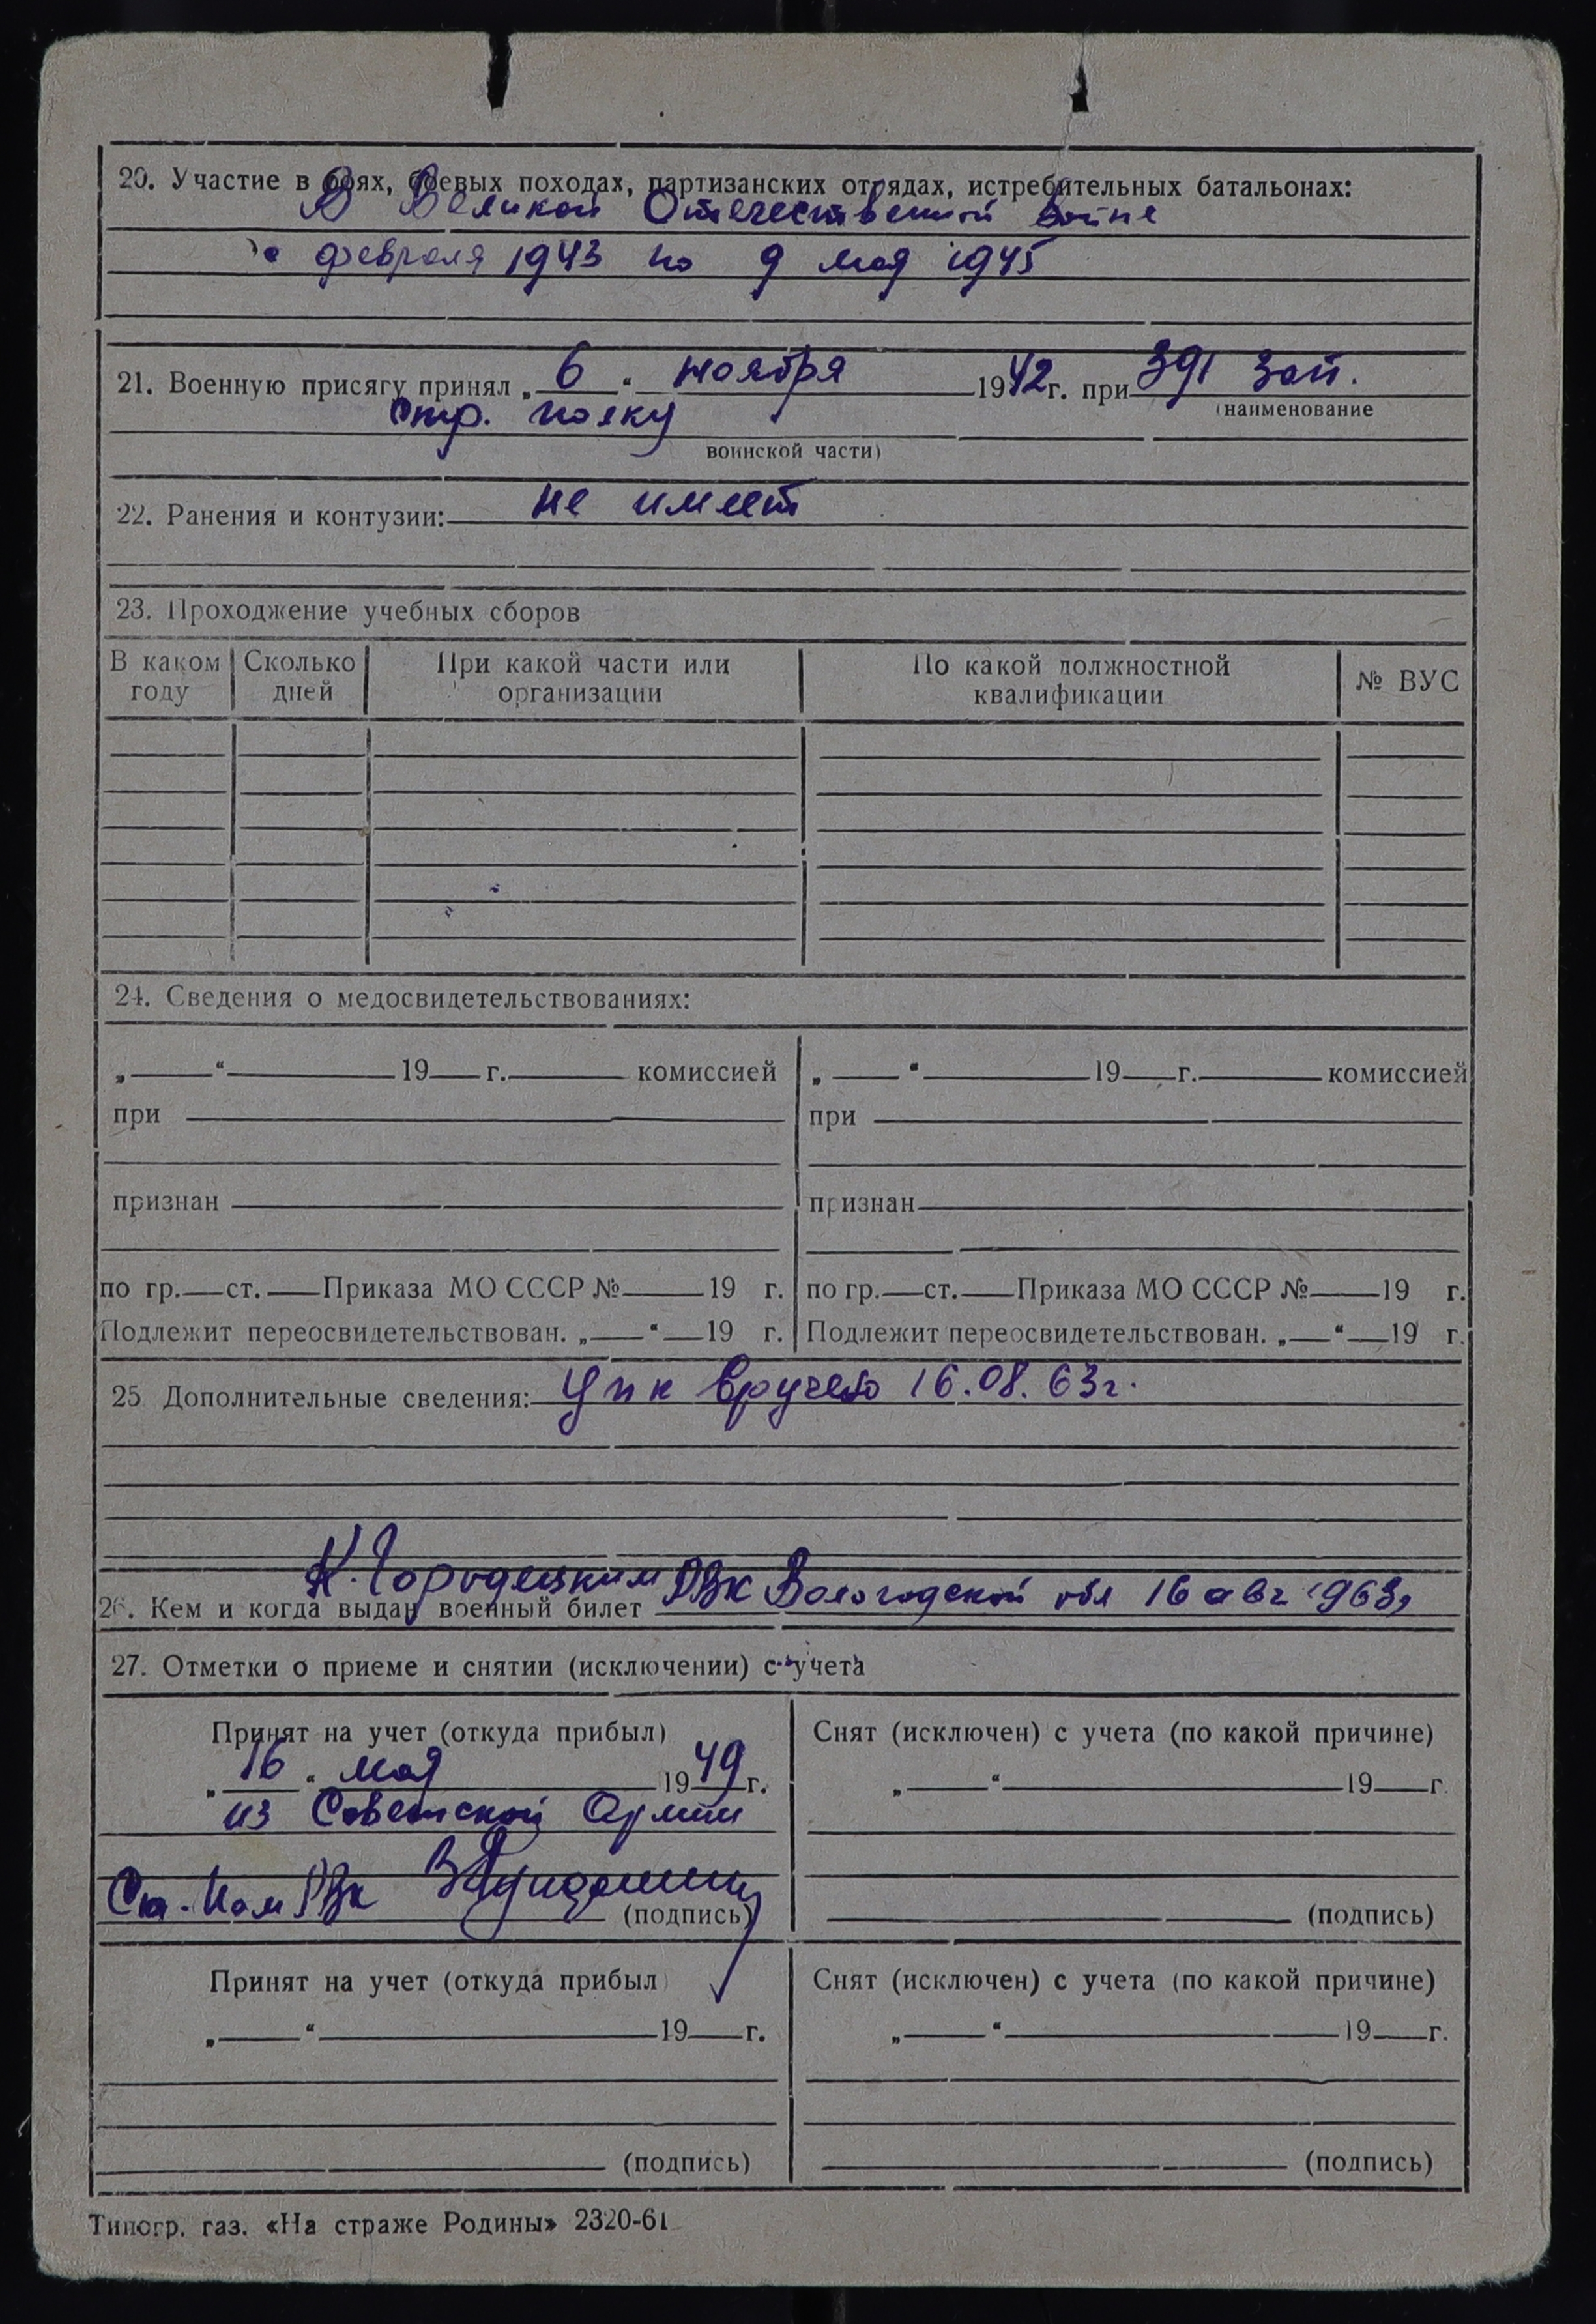 20. Участие в боях, боевых походах, партизанских отрядах, истребительных батальонах:
В Великой Отечественной войне
с февраля 1943 по 9 мая 1945
21. Военную присягу принял „ 6 “ ноября 1942 г. при 391 зап.
(наименование
стр. полку
воинской части)
22. Ранения и контузии: не имеет
23. Прохождение учебных сборов
В каком году Сколько дней При какой части или организации По какой должностной квалификации № ВУС
24. Сведения о медосвидетельствованиях:
„ “ 19 г. комиссией „ “ 19 г. комиссией
при при
признан признан
по гр. ст. Приказа МО СССР № 19 г. по гр. ст. Приказа МО СССР № 19 г.
Подлежит переосвидетельствован. „ “ 19 г. Подлежит переосвидетельствован. „ “ 19 г.
25 Дополнительные сведения: вручено 16.08.63г.
К. Городецким РВК Вологодской обл 16 авг 1963г
26. Кем и когда выдан военный билет
27. Отметки о приеме и снятии (исключении) с учета
Принят на учет (откуда прибыл) Снят (исключен) с учета (по какой причине)
„ 16 “ мая 1949 г. „ “ 19 г.
из Советской Армии
Ст. пом РВК
(подпись) (подпись)
Принят на учет (откуда прибыл) Снят (исключен) с учета (по какой причине)
„ “ 19 г. „ “ 19 г.
(подпись) (подпись)
Типогр. газ. «На страже Родины» 2320-61